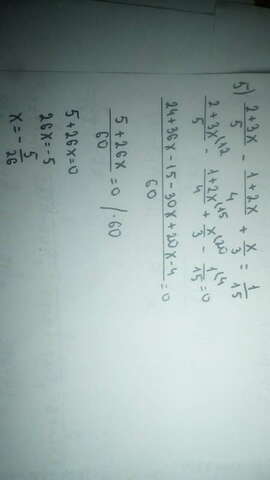 5) (2+3x)/5 - (1+2x)/4 + x/3 = 1/15
(2+3x)/5 (12 - (1+2x)/4 (15 + x/3 (20 - 1/15 (4 = 0
(24+36x-15-30x+20x-4)/60 = 0
(5+26x)/60 = 0 / ·60
5+26x=0
26x=-5
x=-5/26